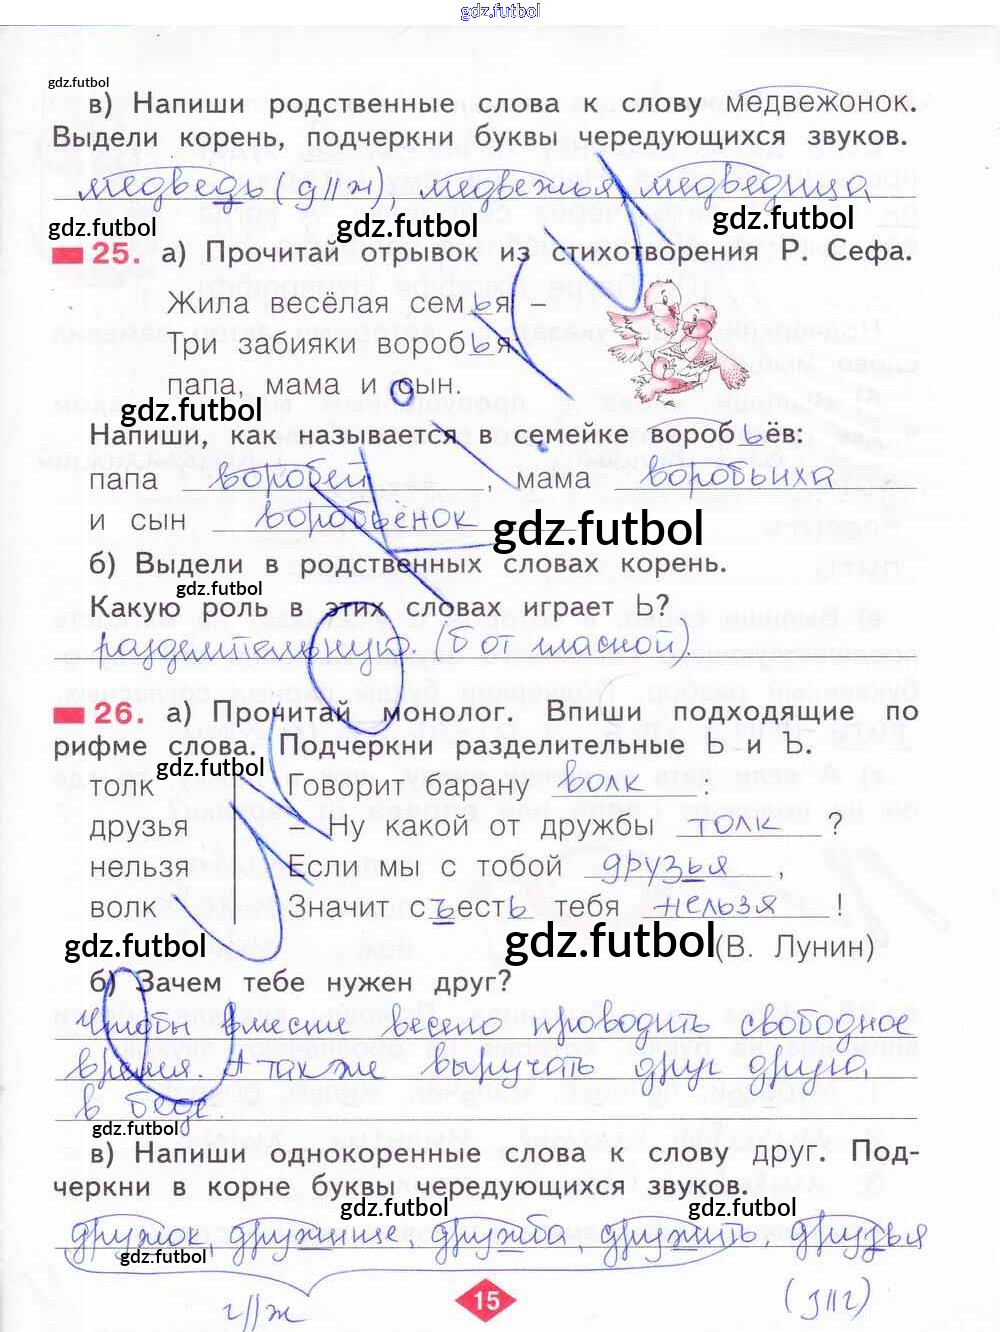 gdz.futbol
gdz.futbol
в) Напиши родственные слова к слову медвежонок.
Выдели корень, подчеркни буквы чередующихся звуков.
медведь (д||ж), медвежья, медведица
gdz.futbol gdz.futbol gdz.futbol
25. а) Прочитай отрывок из стихотворения Р. Сефа.
Жила весёлая семья –
Три забияки воробья:
папа, мама и сын.
gdz.futbol
Напиши, как называется в семейке воробьёв:
папа воробей, мама воробьиха
и сын воробьёнок
gdz.futbol
б) Выдели в родственных словах корень.
gdz.futbol
Какую роль в этих словах играет Ь?
разделительную. (б от гласной).
26. а) Прочитай монолог. Впиши подходящие по
рифме слова. Подчеркни разделительные Ь и Ъ.
gdz.futbol
толк Говорит барану волк :
друзья – Ну какой от дружбы толк ?
нельзя Если мы с тобой друзья ,
волк Значит съесть тебя нельзя !
gdz.futbol gdz.futbol (В. Лунин)
б) Зачем тебе нужен друг?
Чтобы вместе весело проводить свободное
время. А также выручать друг друга
в беде.
gdz.futbol
в) Напиши однокоренные слова к слову друг. Под-
черкни в корне буквы чередующихся звуков.
gdz.futbol gdz.futbol
дружок, дружище, дружба, дружить, друзья
gdz.futbol
г||ж 15 (з||г)